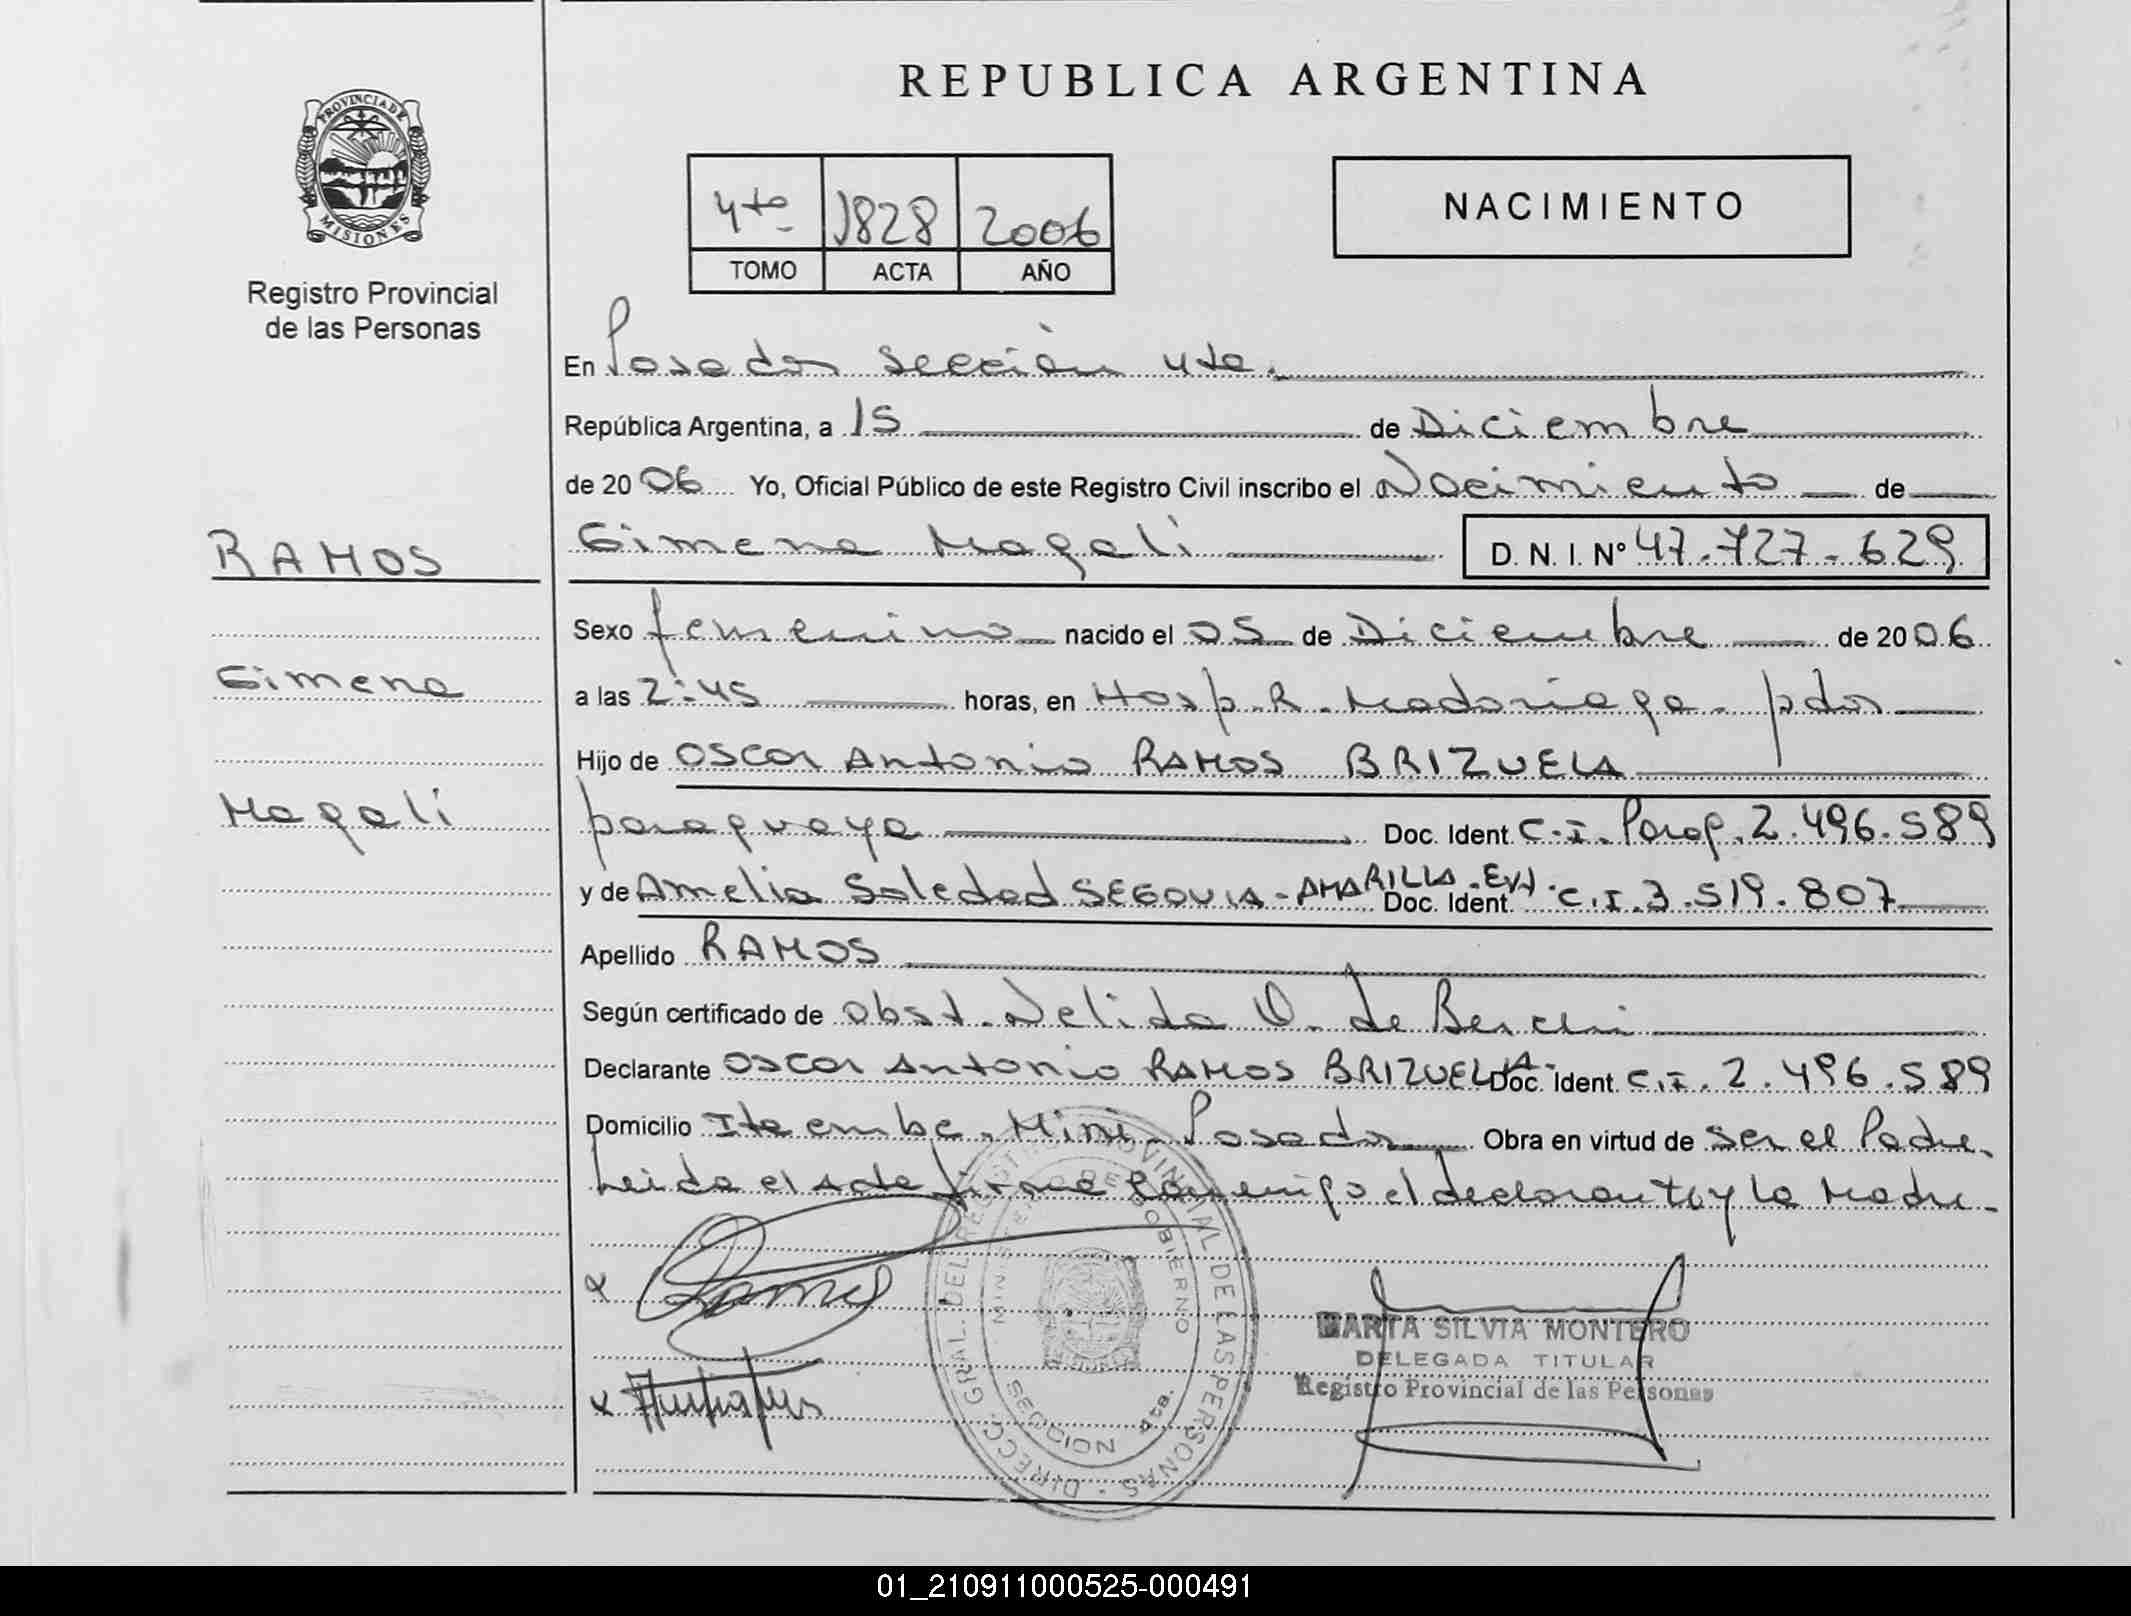 REPUBLICA ARGENTINA
PROVINCIA DE
MISIONES
Registro Provincial
de las Personas
4to 1828 2006
TOMO ACTA AÑO
NACIMIENTO
En Posadas Sección 4ta.
República Argentina, a 15 de Diciembre
de 2006 Yo, Oficial Público de este Registro Civil inscribo el Nacimiento de
Gimena Magali D. N. I. Nº 47.727.629
RAMOS
Gimena
Magali
Sexo femenino nacido el 05 de Diciembre de 2006
a las 2:45 horas, en Hosp. R. Madariaga - pdas
Hijo de Oscar Antonio RAMOS BRIZUELA
paraguaya Doc. Ident. C.I. Parag. 2.496.589
y de Amelia Soledad SEGOVIA - AMARILLA Doc. Ident. C.I. 3.519.807
Apellido RAMOS
Según certificado de Obst. Nelida O. de
Declarante Oscar Antonio RAMOS BRIZUELA Doc. Ident. C.I. 2.496.589
Domicilio Itaembe - Mini - Posadas Obra en virtud de ser el Padre.
Leida el Acta firma conmigo el declarante y la Madre -
x Ramos
x
DIRECC. GRAL. DEL REGISTRO PROVINCIAL DE LAS PERSONAS
MINISTERIO DE GOBIERNO
SECCION 4ta.
MARTA SILVIA MONTERO
DELEGADA TITULAR
Registro Provincial de las Personas
01_210911000525-000491